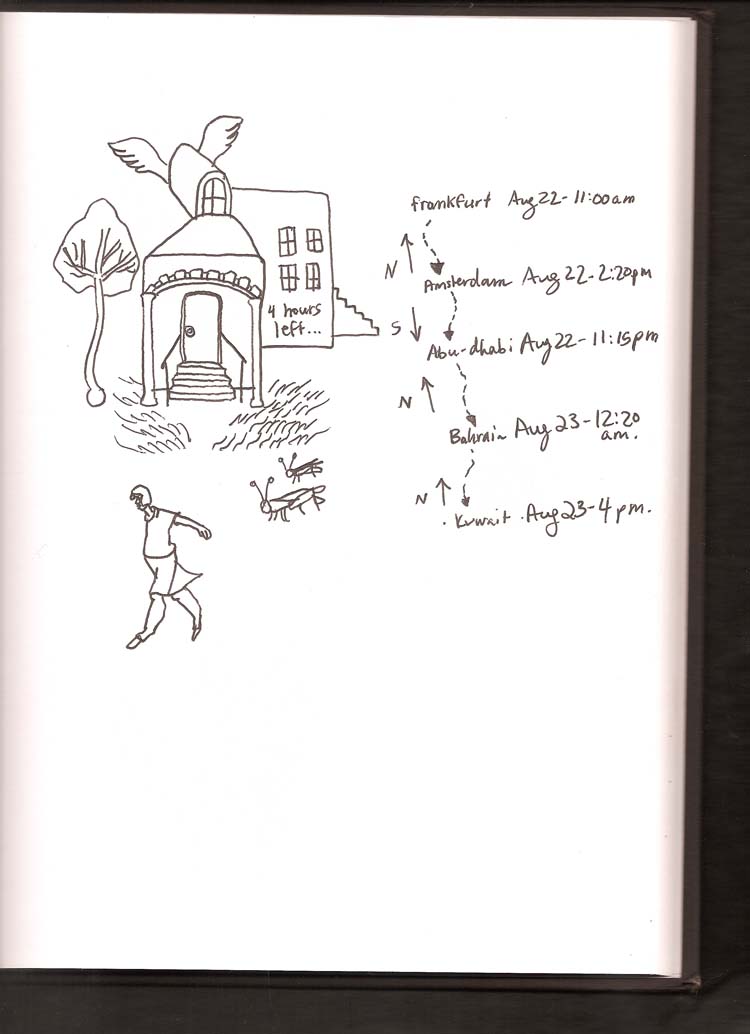 frankfurt Aug 22-11:00am
N
Amsterdam Aug 22-2:20pm
4 hours
left...
S
Abu-dhabi Aug 22-11:15pm
N
Bahrain Aug 23-12:20
am.
N
. Kuwait . Aug 23-4pm.